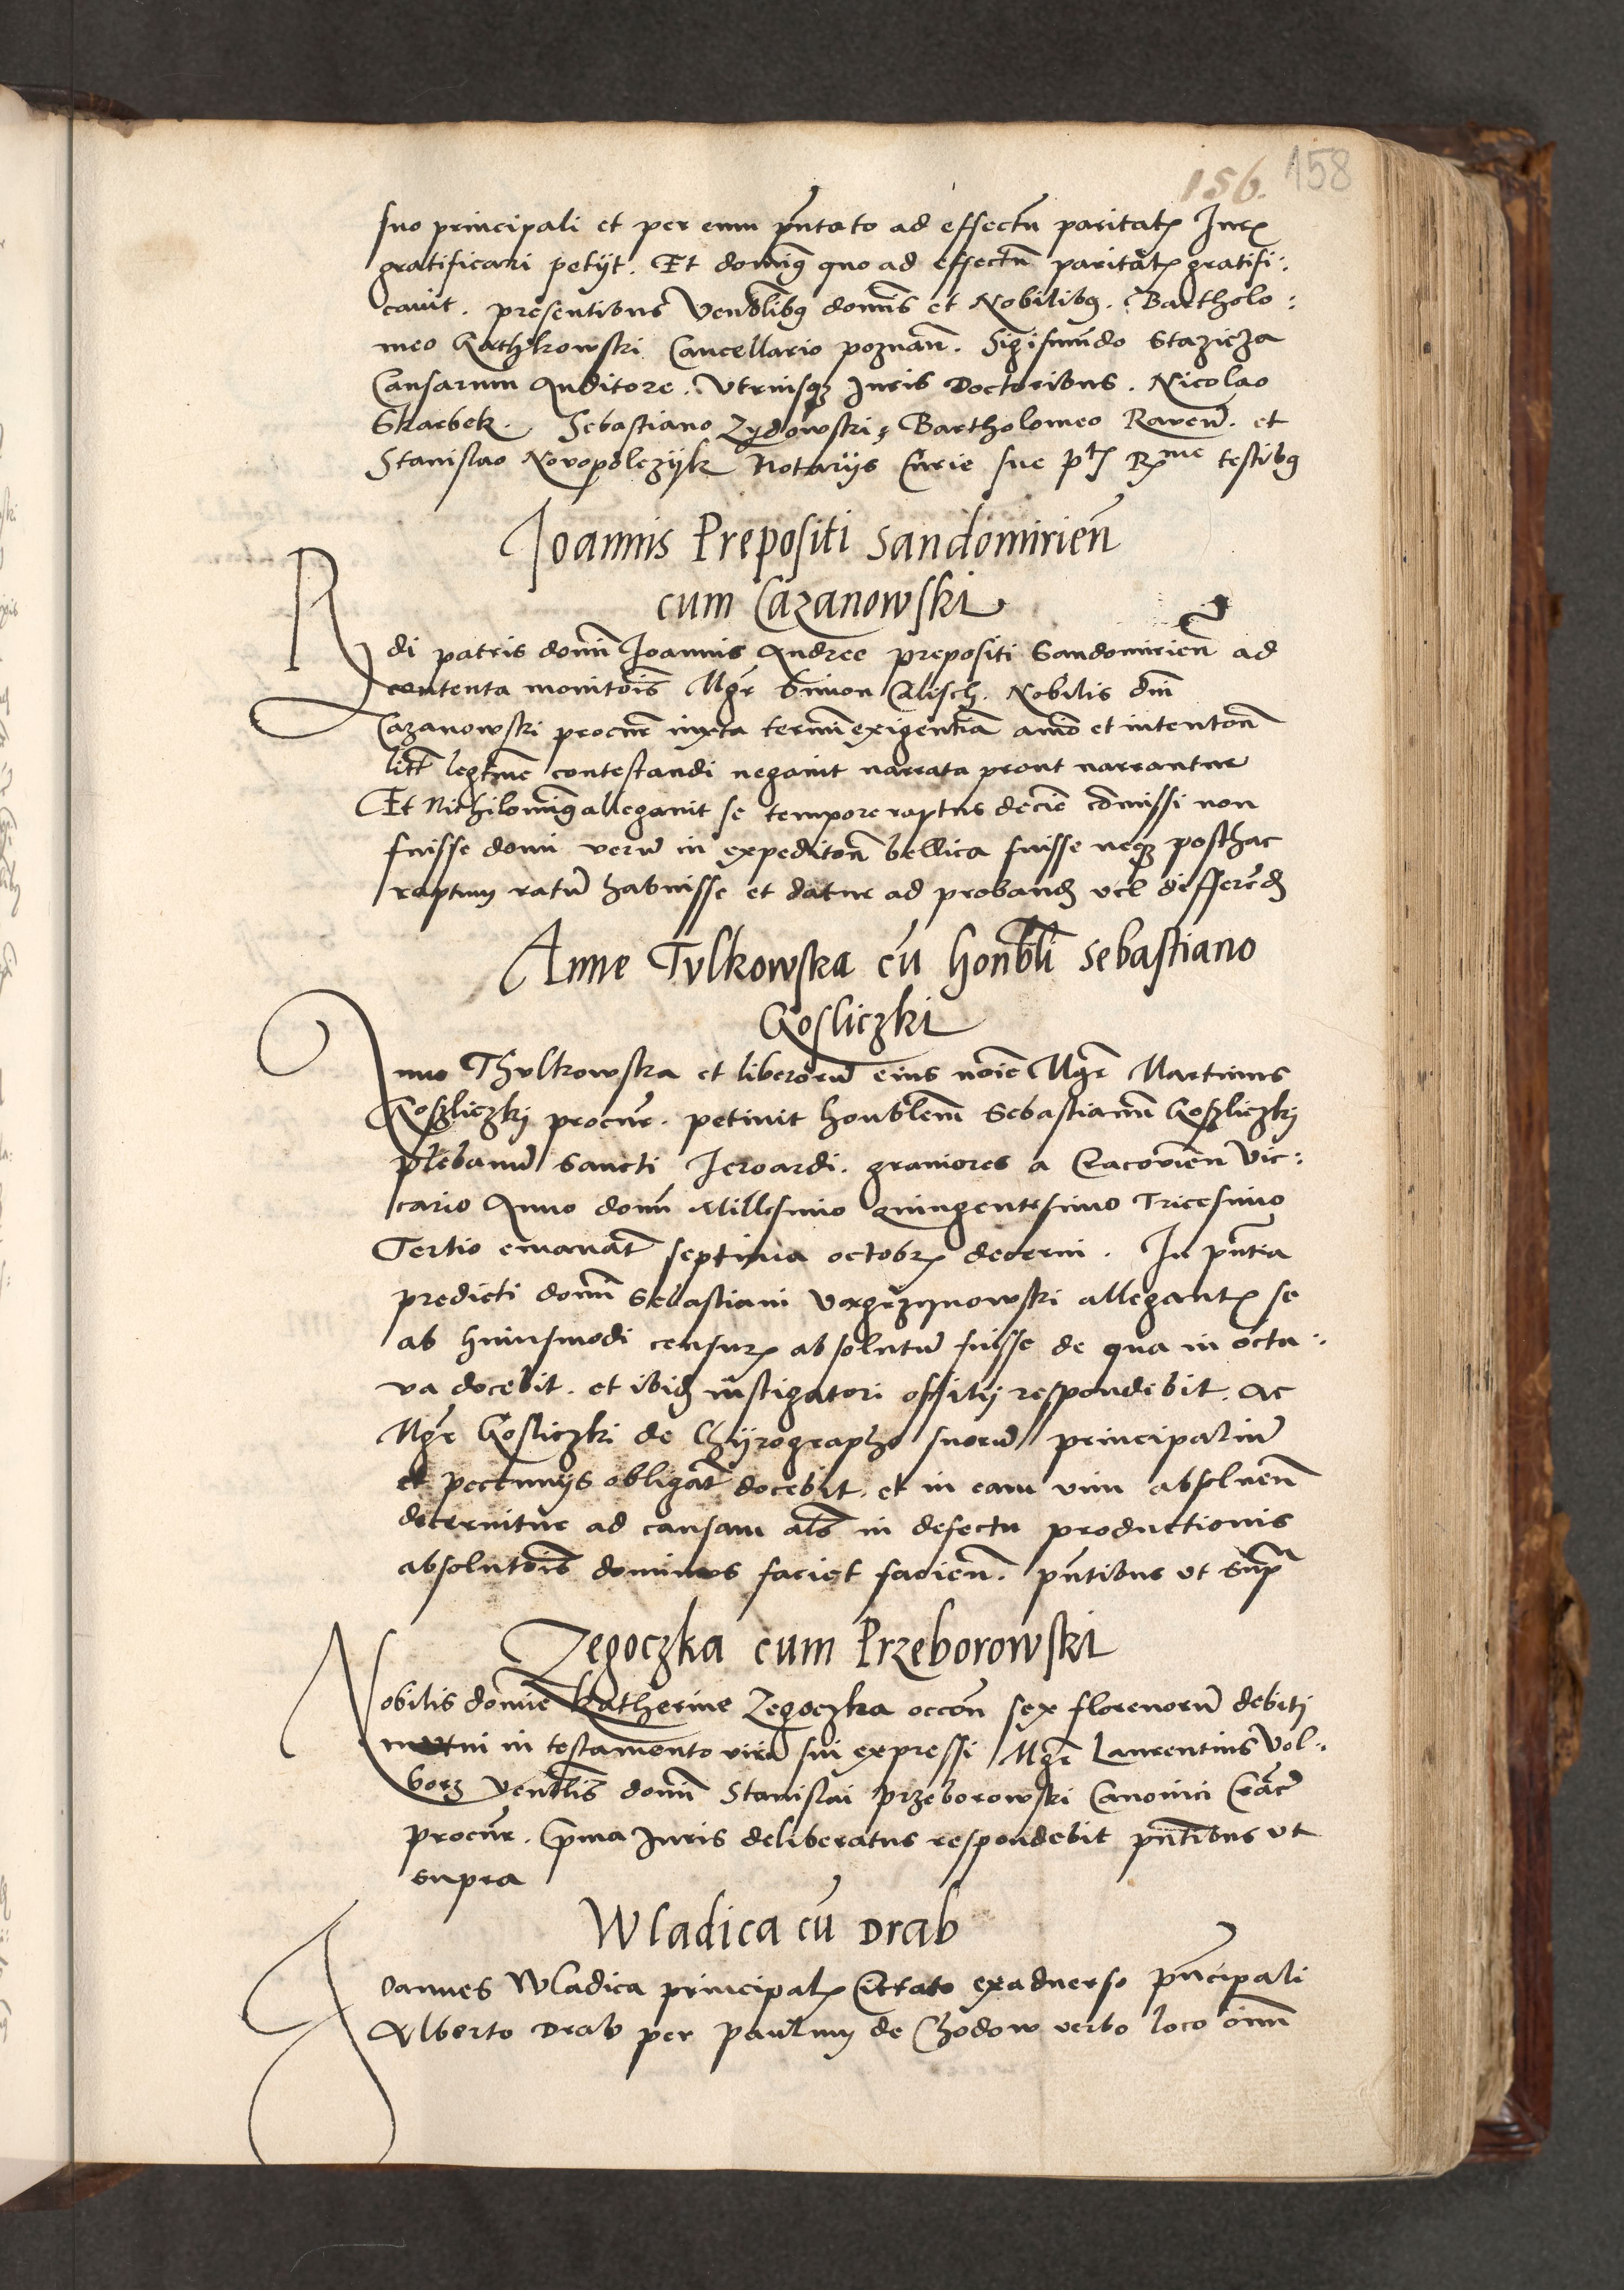 156. 158
suo principali et per eum pñtato ad effectũ paritatꝭ Jurꝭ
gratificari petijt. Et dominꝰ quo ad effectũ paritatꝭ gratifi:
cavit. presentibus Venblibꝫ domĩs et Nobilibꝫ. Bartholo:
meo Gathkowski Cancellario poznañ. Sigismũdo Stazicza
Causarum Auditore. Utriusqꝫ Juris Doctoribus. Nicolao
Skarbek. Sebastiano Zydowski, Bartholomeo Raveñ. et
Stanislao Novopolczijk Notarijs Curie sue pti Rme testibꝫ
Joannis Prepositi Sandomirieñ
cum Cazanowski
Rdi patris domĩ Joannis Andree prepositi Sandomirieñ ad
contenta monitoĩs Mgr̃ Simon Calisch. Nobilis dñi
Cazanowski procur̃ iuxta termĩ exigentiã animo et intentoñ
litt legtime contestandi negavit narrata prout narrantur
Et Nichilominꝰ allegavit se tempore raptus decie comissi non
fuisse domi verũ in expeditoñ bellica fuisse neqꝫ posthac
raptum ratũ habuisse et datur ad probandꝫ vel differẽdꝫ
Anne Tvlkowska cũ honbli Sebastiano
Gosliczki
Anne Thvlkowska et liberorũ eius noĩe Mgr̃ Martinus
Goszliczkj procur̃. petivit honblem Sebastianũ Goszliczkj
plebanũ Sancti Jeroardi. graviores a Cracovieñ Vic:
cario Anno domĩ Millesimo quingentesimo Tricesimo
Tertio emanat septima octobrꝭ decerni. In pñtia
predicti domĩ Sebastiani Vxgrzynowski allegantꝭ se
ab huiusmodi censurꝭ absolutũ fuisse de qua in octa:
va docebit. et ibidꝫ instigatori offitij respondebit. ac
Mgr̃ Gosliczki de Chijrographo suorũ principaliũ
et pecunijs obligat docebit. et in eam vim absolueñ
decernitur ad causam als in defectu productionis
absolutoĩs dominus faciet facieñ. pñtibus ut supꝛa
Zegoczka cum Przeborowski
Nobilis domĩe Katherine Zegoczka occoñ sex florenorũ debiti
mutui in testamento viri sui expressi Mgr̃ Laurentius Vol:
borz Venblis domĩ Stanislai przeborowski Canonici Crac̃
procur̃. Pma Juris deliberatus respondebit pñtibus ut
supra
Wladica cũ Drab
Joannes Wladica principalꝭ Cittato exadverso pñcipali
Alberto Drab per paulum de Chodow verbo loco oĩm